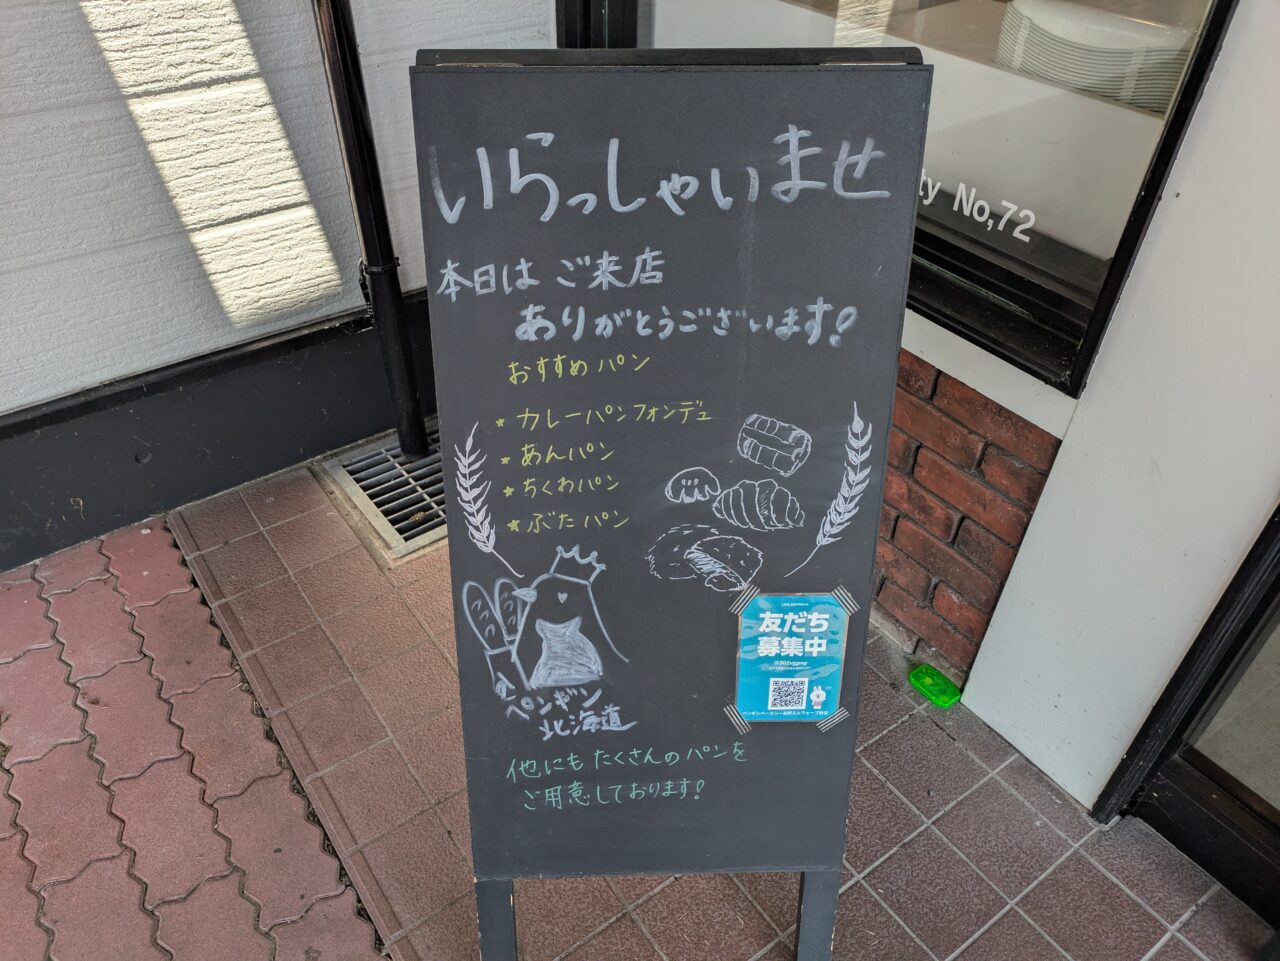 いらっしゃいませ
本日は ご来店
ありがとうございます!
おすすめパン
★カレーパンフォンデュ
★あんパン
★ちくわパン
★ぶたパン
ペンギン
北海道
他にも たくさんのパンを
ご用意しております!
友だち
募集中
@302vgjmp
ty No,72